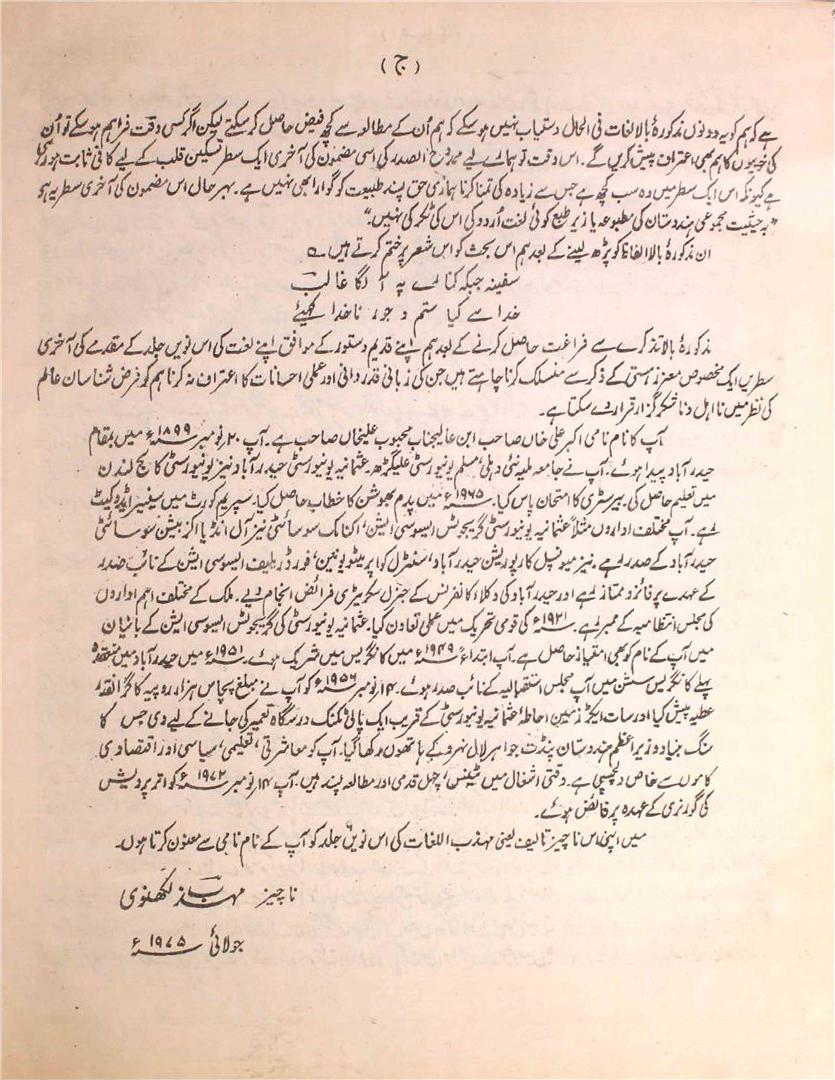 (ج)
ہے کہ ہم کو یہ دونوں مذکورۂ بالا لغات فی الحال دستیاب نہیں ہو سکے کہ ہم اُن کے مطالعہ سے کچھ فیض حاصل کر سکتے لیکن اگر کسی وقت فراہم ہو سکے تو اُن
کی خوبیوں کا ہم بھی اعتراف پیش کریں گے۔ اس وقت تو ہمارے لیے ممدوح الصدر کی اسی مضمون کی آخری ایک سطر تسکین قلب کے لیے کافی ثابت ہو رہی
ہے کیونکہ اس ایک سطر میں وہ سب کچھ ہے جس سے زیادہ کی تمنا کرنا ہماری حق پسند طبیعت کو گوارا بھی نہیں ہے۔ بہرحال اس مضمون کی آخری سطر یہ ہے
"بہ حیثیت مجموعی ہندوستان کی مطبوعہ یا زیر طبع کوئی لغت اُردو کی اس کی ٹکر کی نہیں۔"
ان مذکورۂ بالا الفاظ کو پڑھ لینے کے بعد ہم اس بحث کو اس شعر پر ختم کرتے ہیں۔ ؎
سفینہ جبکہ کنارے پہ آ لگا غالب
خدا سے کیا ستم و جور ناخدا کہیئے
مذکورۂ بالا تذکرے سے فراغت حاصل کرنے کے بعد ہم اپنے قدیم دستور کے موافق اپنے لغت کی اس نویں جلد کے مقدمے کی آخری
سطریں ایک مخصوص معزز ہستی کے ذکر سے منسلک کرنا چاہتے ہیں جن کی زبانی قدردانی اور عملی احسانات کا اعتراف نہ کرنا ہم کو فرض شناسان عالم
کی نظر میں نااہل و ناشکر گزار قرار دے سکتا ہے۔
آپ کا نام نامی اکبر علی خاں صاحب ابن عالیجناب محبوب علیخاں صاحب ہے۔ آپ ۲۰؍نومبر ۱۸۹۹ء میں بمقام
حیدرآباد پیدا ہوئے۔ آپ نے جامعہ ملیہ نئی دہلی، مسلم یونیورسٹی علیگڑھ۔ عثمانیہ یونیورسٹی حیدرآباد نیز یونیورسٹی کالج لندن
میں تعلیم حاصل کی۔ بیرسٹری کا امتحان پاس کیا۔ ۱۹۶۵ء میں پدم بھوشن کا خطاب حاصل کیا۔ سپریم کورٹ میں سینیر ایڈوکیٹ
رہے۔ آپ مختلف اداروں مثلاً عثمانیہ یونیورسٹی گریجوٹس ایسوسی ایشن، اکنامک سوسائٹی نیز آل انڈیا اگزیبیشن سوسائٹی
حیدرآباد کے صدر رہے۔ نیز میونسپل کارپوریشن حیدرآباد، سنٹرل کواپریٹو یونین، فورڈ ریلیف ایسوسی ایشن کے نائب صدر
کے عہدے پر فائز و ممتاز رہے اور حیدرآباد کی وکلاء کانفرنس کے جنرل سکریٹری فرائض انجام دیے۔ ملک کے مختلف اہم اداروں
کی مجلس انتظامیہ کے ممبر رہے۔ ۱۹۲۱ء کی قومی تحریک میں عملی تعاون کیا۔ عثمانیہ یونیورسٹی کی گریجوٹس ایسوسی ایشن کے بانیان
میں آپ کے نام کو بھی امتیاز حاصل ہے۔ آپ ابتداءً ۱۹۴۹ء میں کانگریس میں شریک ہوئے۔ ۱۹۵۱ء میں حیدرآباد میں منعقدہ
پہلے کانگریس سشن میں آپ مجلس استقبالیہ کے نائب صدر ہوئے۔ ۱۴؍نومبر ۱۹۵۶ء کو آپ نے مبلغ پچاس ہزار روپیہ کا گرانقدر
عطیہ پیش کیا اور سات ایکڑ زمین احاطۂ عثمانیہ یونیورسٹی کے قریب ایک پالی ٹکنک درسگاہ تعمیر کی جانے کے لیے دی جس کا
سنگ بنیاد وزیر اعظم ہندوستان پنڈت جواہر لال نہرو کے ہاتھوں رکھا گیا۔ آپ کو معاشرتی، تعلیمی، سیاسی اور اقتصادی
کاموں سے خاص دلچسپی ہے۔ وقتی اشغال میں ٹینس، چہل قدمی اور مطالعہ پسند ہیں۔ آپ ۱۴؍نومبر ۱۹۷۲ء کو اتر پردیش
کی گورنری کے عہدہ پر فائض ہوئے۔
میں اپنی اس ناچیز تالیف یعنی مہذب اللغات کی اس نویں جلد کو آپ کے نام نامی سے معنون کرتا ہوں۔
ناچیز مہذب لکھنوی
جولائی ۱۹۷۵ء